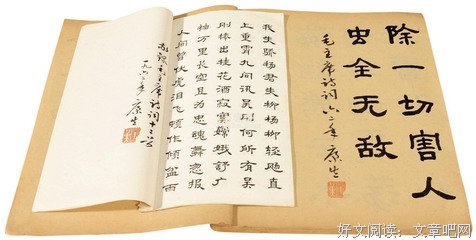 除一切害人
虫全无敌
毛主席诗词 六二年 康生
我失骄杨君失柳杨柳轻飏直
上重霄九问讯吴刚何所有吴
刚捧出桂花酒寂寞嫦娥舒广
袖万里长空且为忠魂舞忽报
人间曾伏虎泪飞顿作倾盆雨
毛主席诗词十
一九六二年 康生
好文阅读:文章吧网